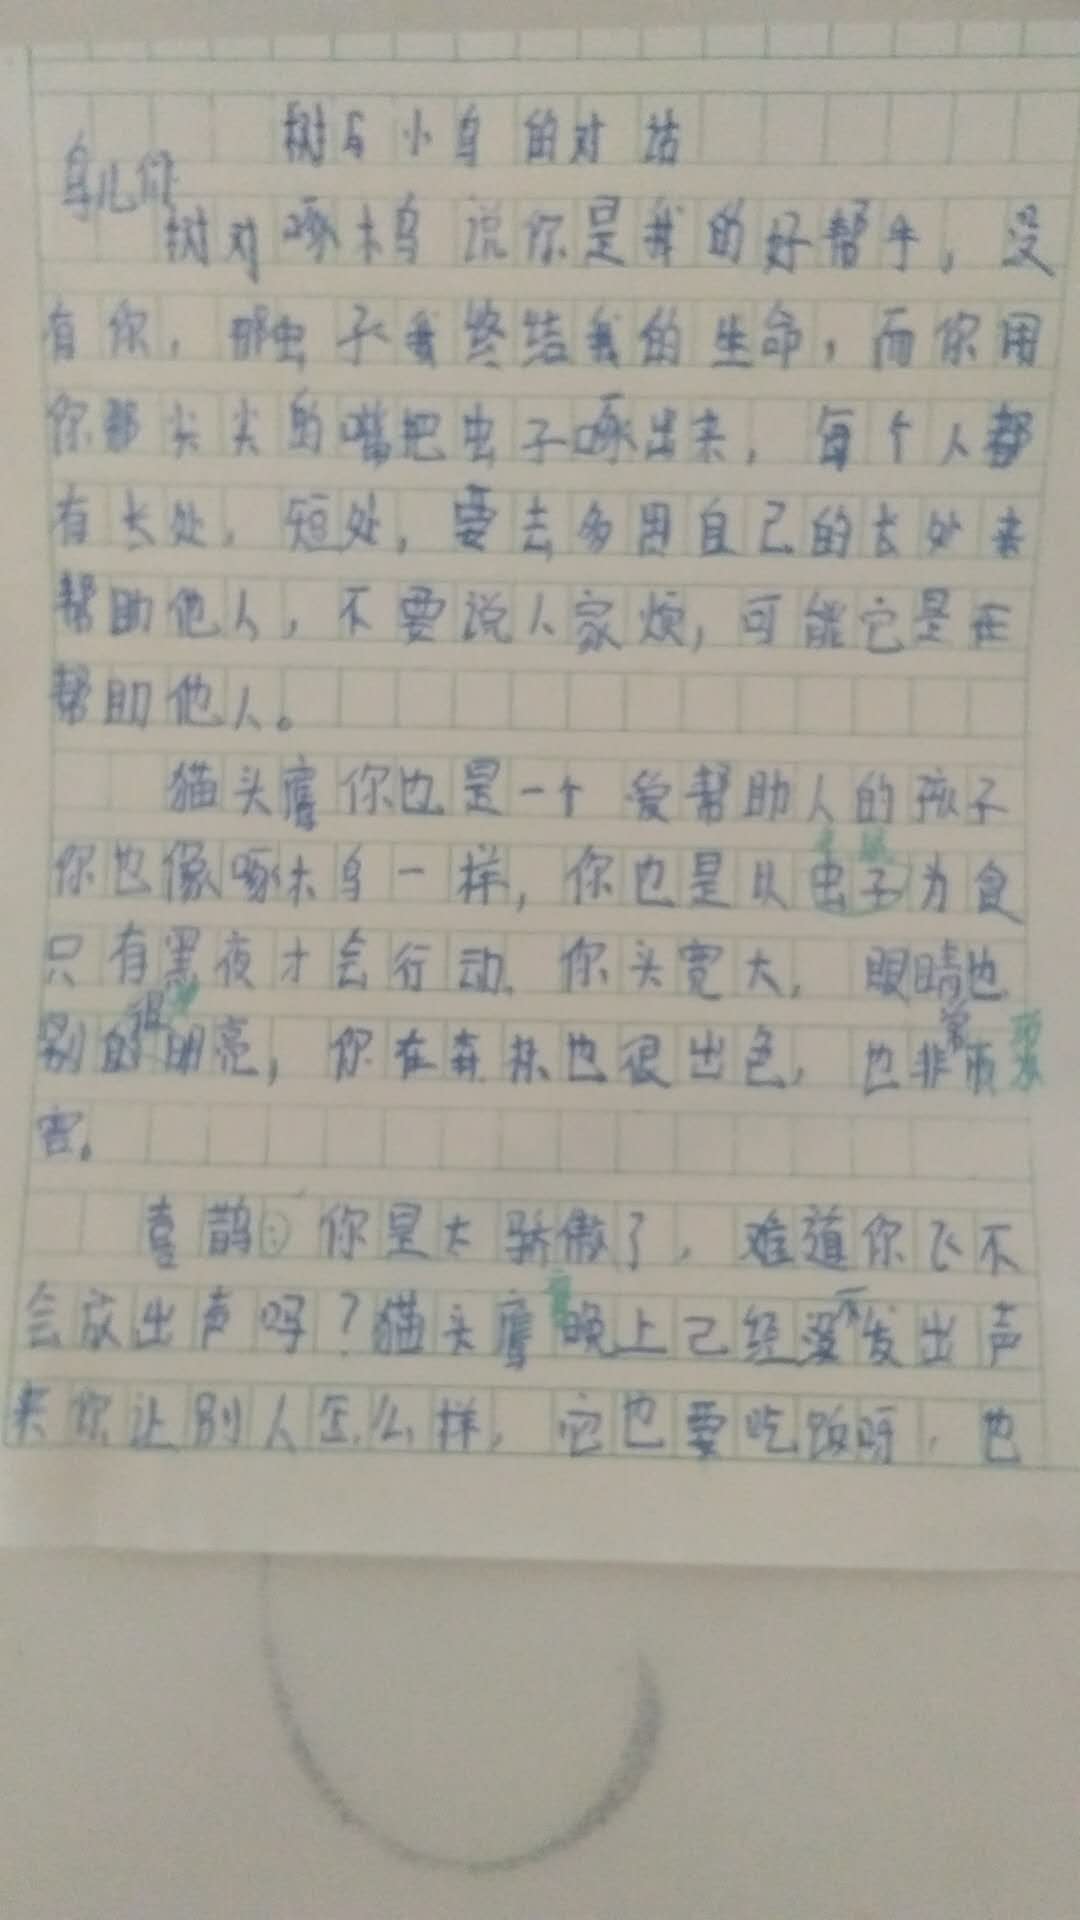 树与小鸟的对话
鸟儿们
树对啄木鸟说你是我的好帮手，没
有你，那虫子我终结我的生命，而你用
你那尖尖的嘴把虫子啄出来，每个人都
有长处，短处，要去多用自己的长处来
帮助他人，不要说人家烦，可能它是在
帮助他人。
猫头鹰你也是一个爱帮助人的孩子
你也像啄木鸟一样，你也是以虫子为食
只有黑夜才会行动，你头宽大，眼睛也
别的很明亮，你在森林也很出色，也非常
害。
喜鹊：你是太骄傲了，难道你飞不
会放出声吗？猫头鹰晚上己经没不发出声
来你让别人怎么样，它也要吃饭呀，也